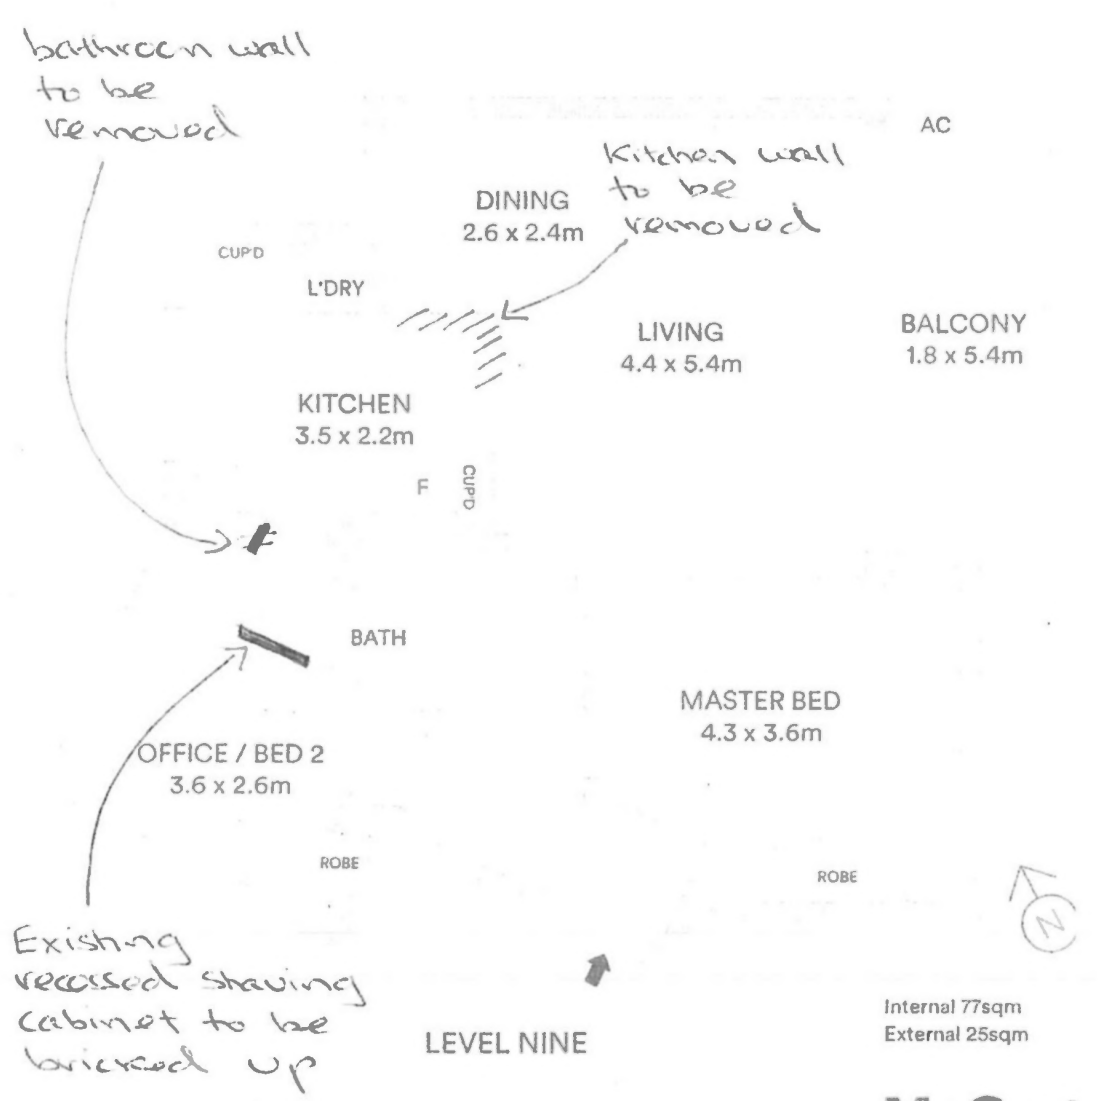 bathroom wall
to be
removed
AC
Kitchen wall
to be
removed
DINING
2.6 x 2.4m
CUP'D
L'DRY
LIVING
4.4 x 5.4m
BALCONY
1.8 x 5.4m
KITCHEN
3.5 x 2.2m
F
CUP'D
BATH
MASTER BED
4.3 x 3.6m
OFFICE / BED 2
3.6 x 2.6m
ROBE
ROBE
N
Existing
recessed shaving
cabinet to be
bricked up
LEVEL NINE
Internal 77sqm
External 25sqm